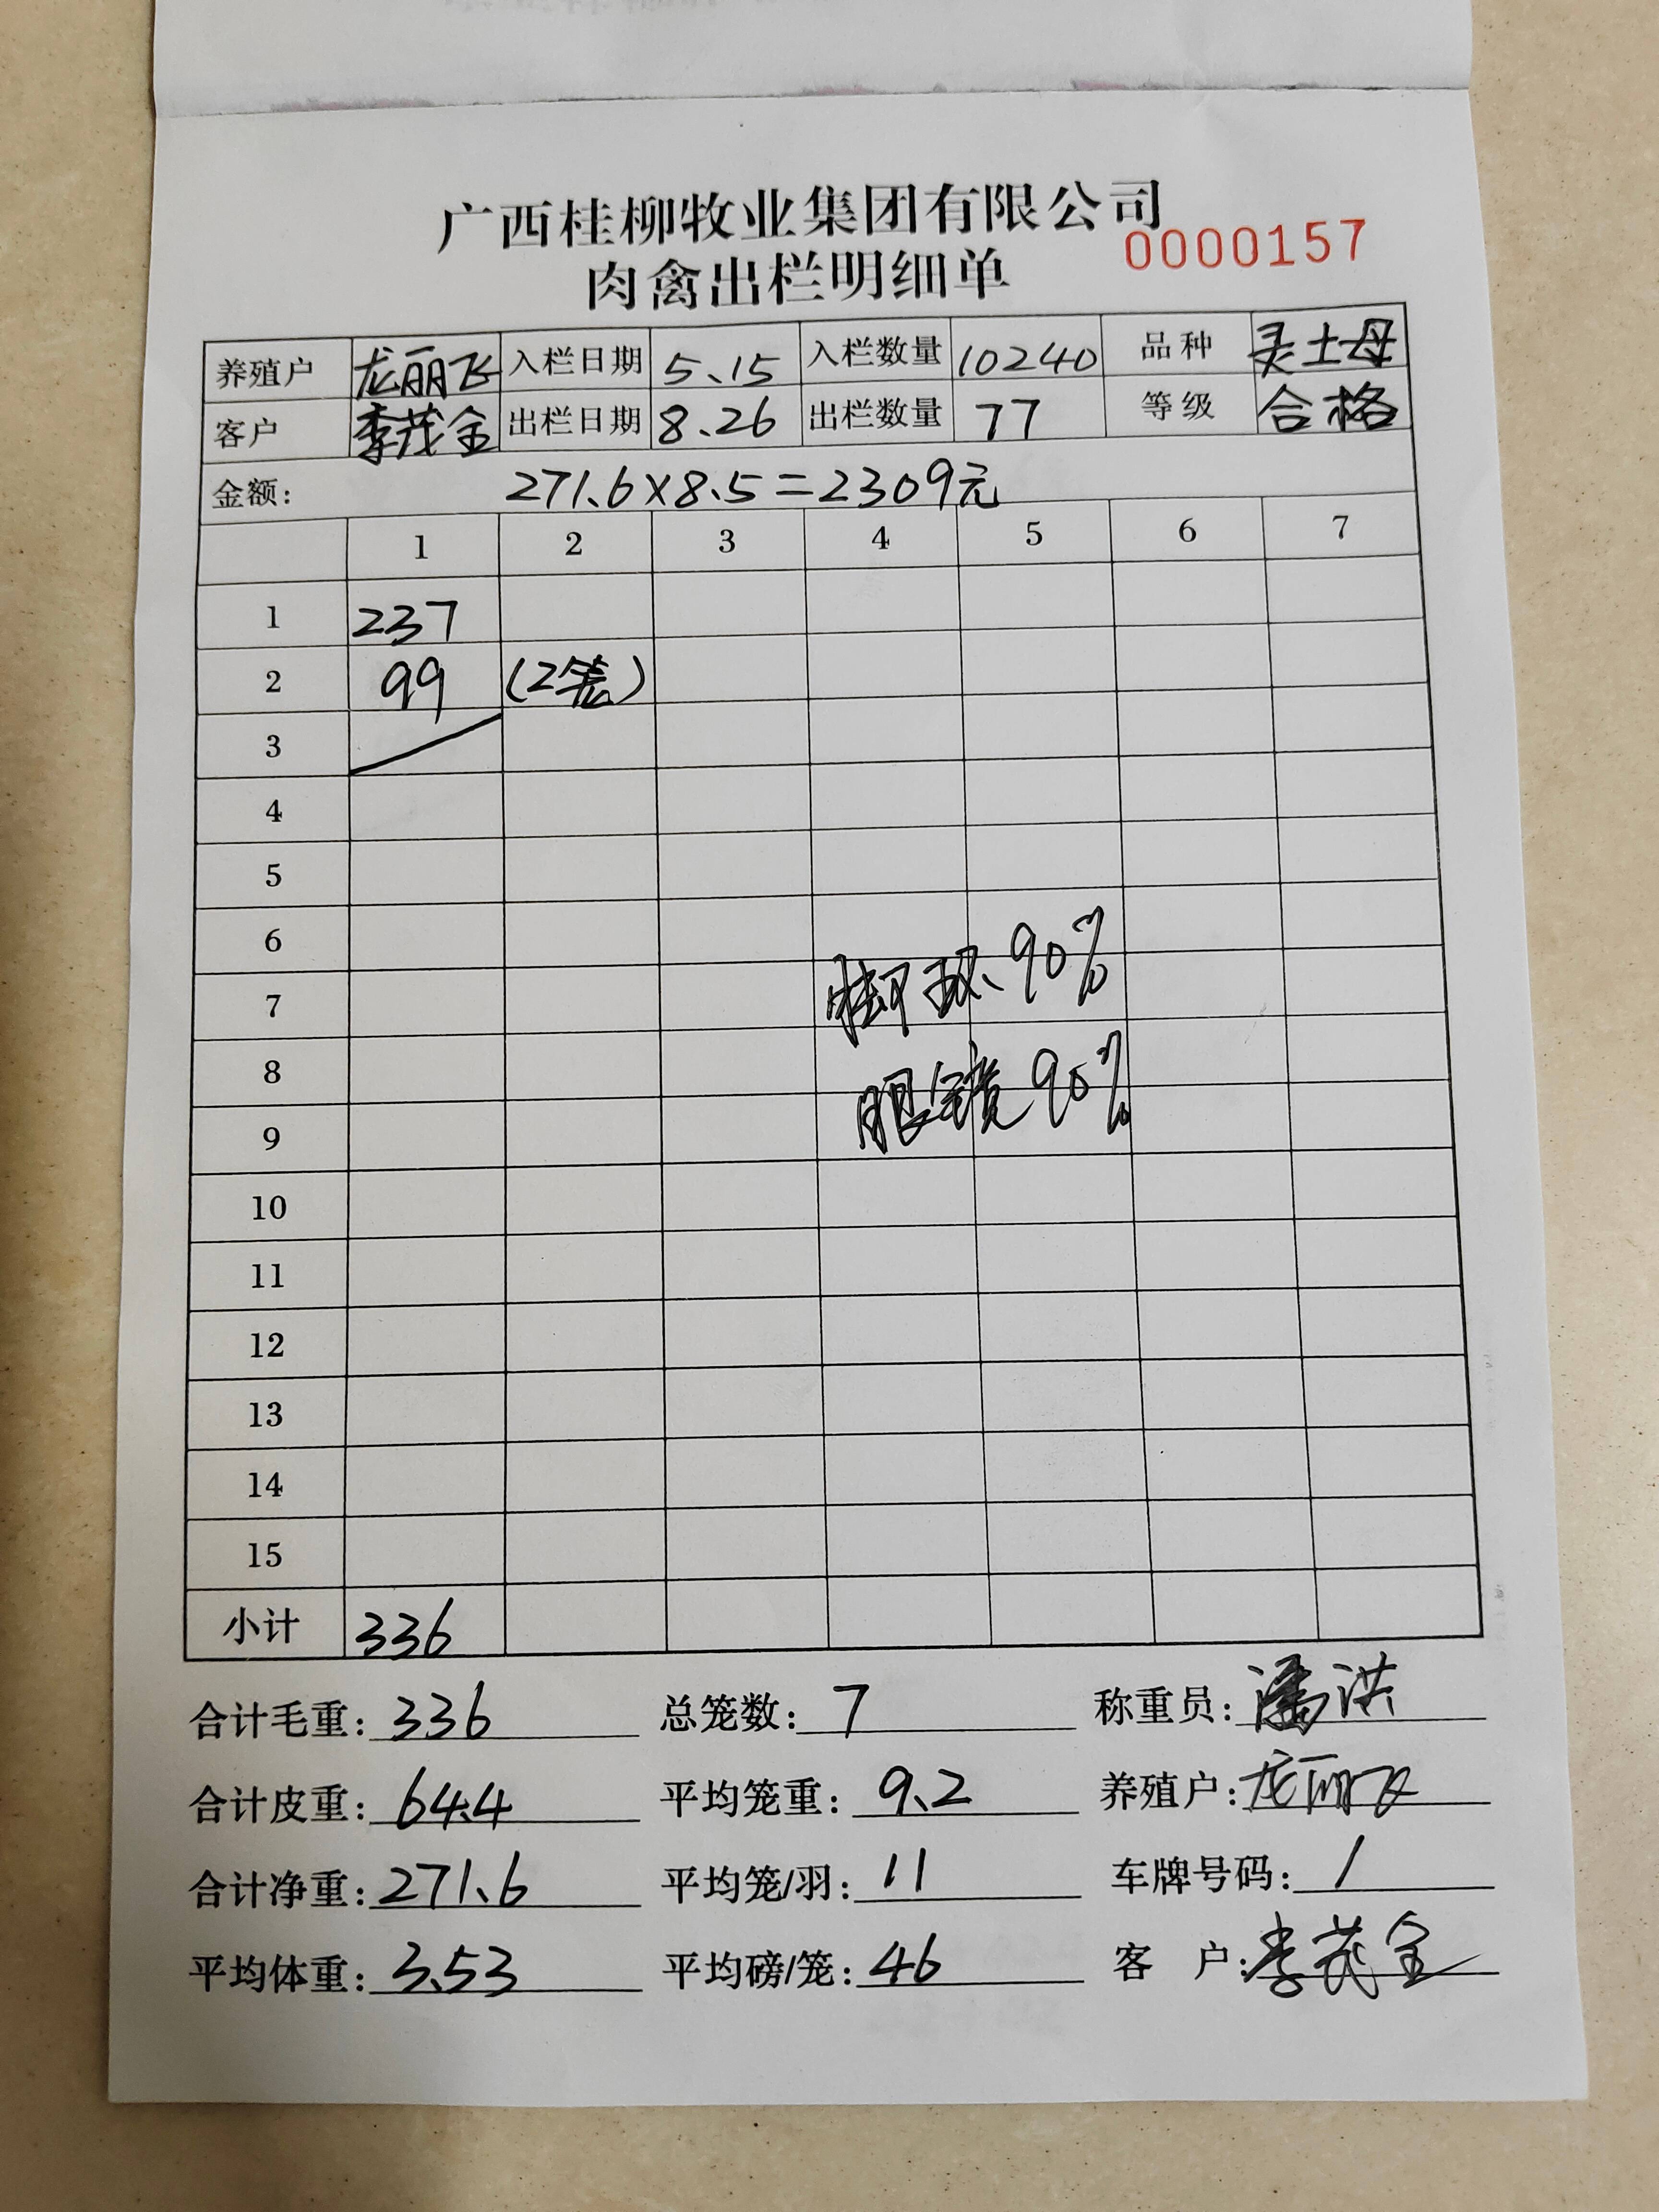 广西桂柳牧业集团有限公司
0000157
肉禽出栏明细单
养殖户 龙丽飞 入栏日期 5.15 入栏数量 10240 品种 灵土母
客户 李茂金 出栏日期 8.26 出栏数量 77 等级 合格
金额: 271.6×8.5=2309元
1 2 3 4 5 6 7
1 237
2 99 (2笼)
3
4
5
6
7 脚环、90%
8
9 眼镜90%
10
11
12
13
14
15
小计 336
合计毛重: 336 总笼数: 7 称重员: 潘洪
合计皮重: 64.4 平均笼重: 9.2 养殖户: 龙丽飞
合计净重: 271.6 平均笼/羽: 11 车牌号码: /
平均体重: 3.53 平均磅/笼: 46 客户: 李茂金